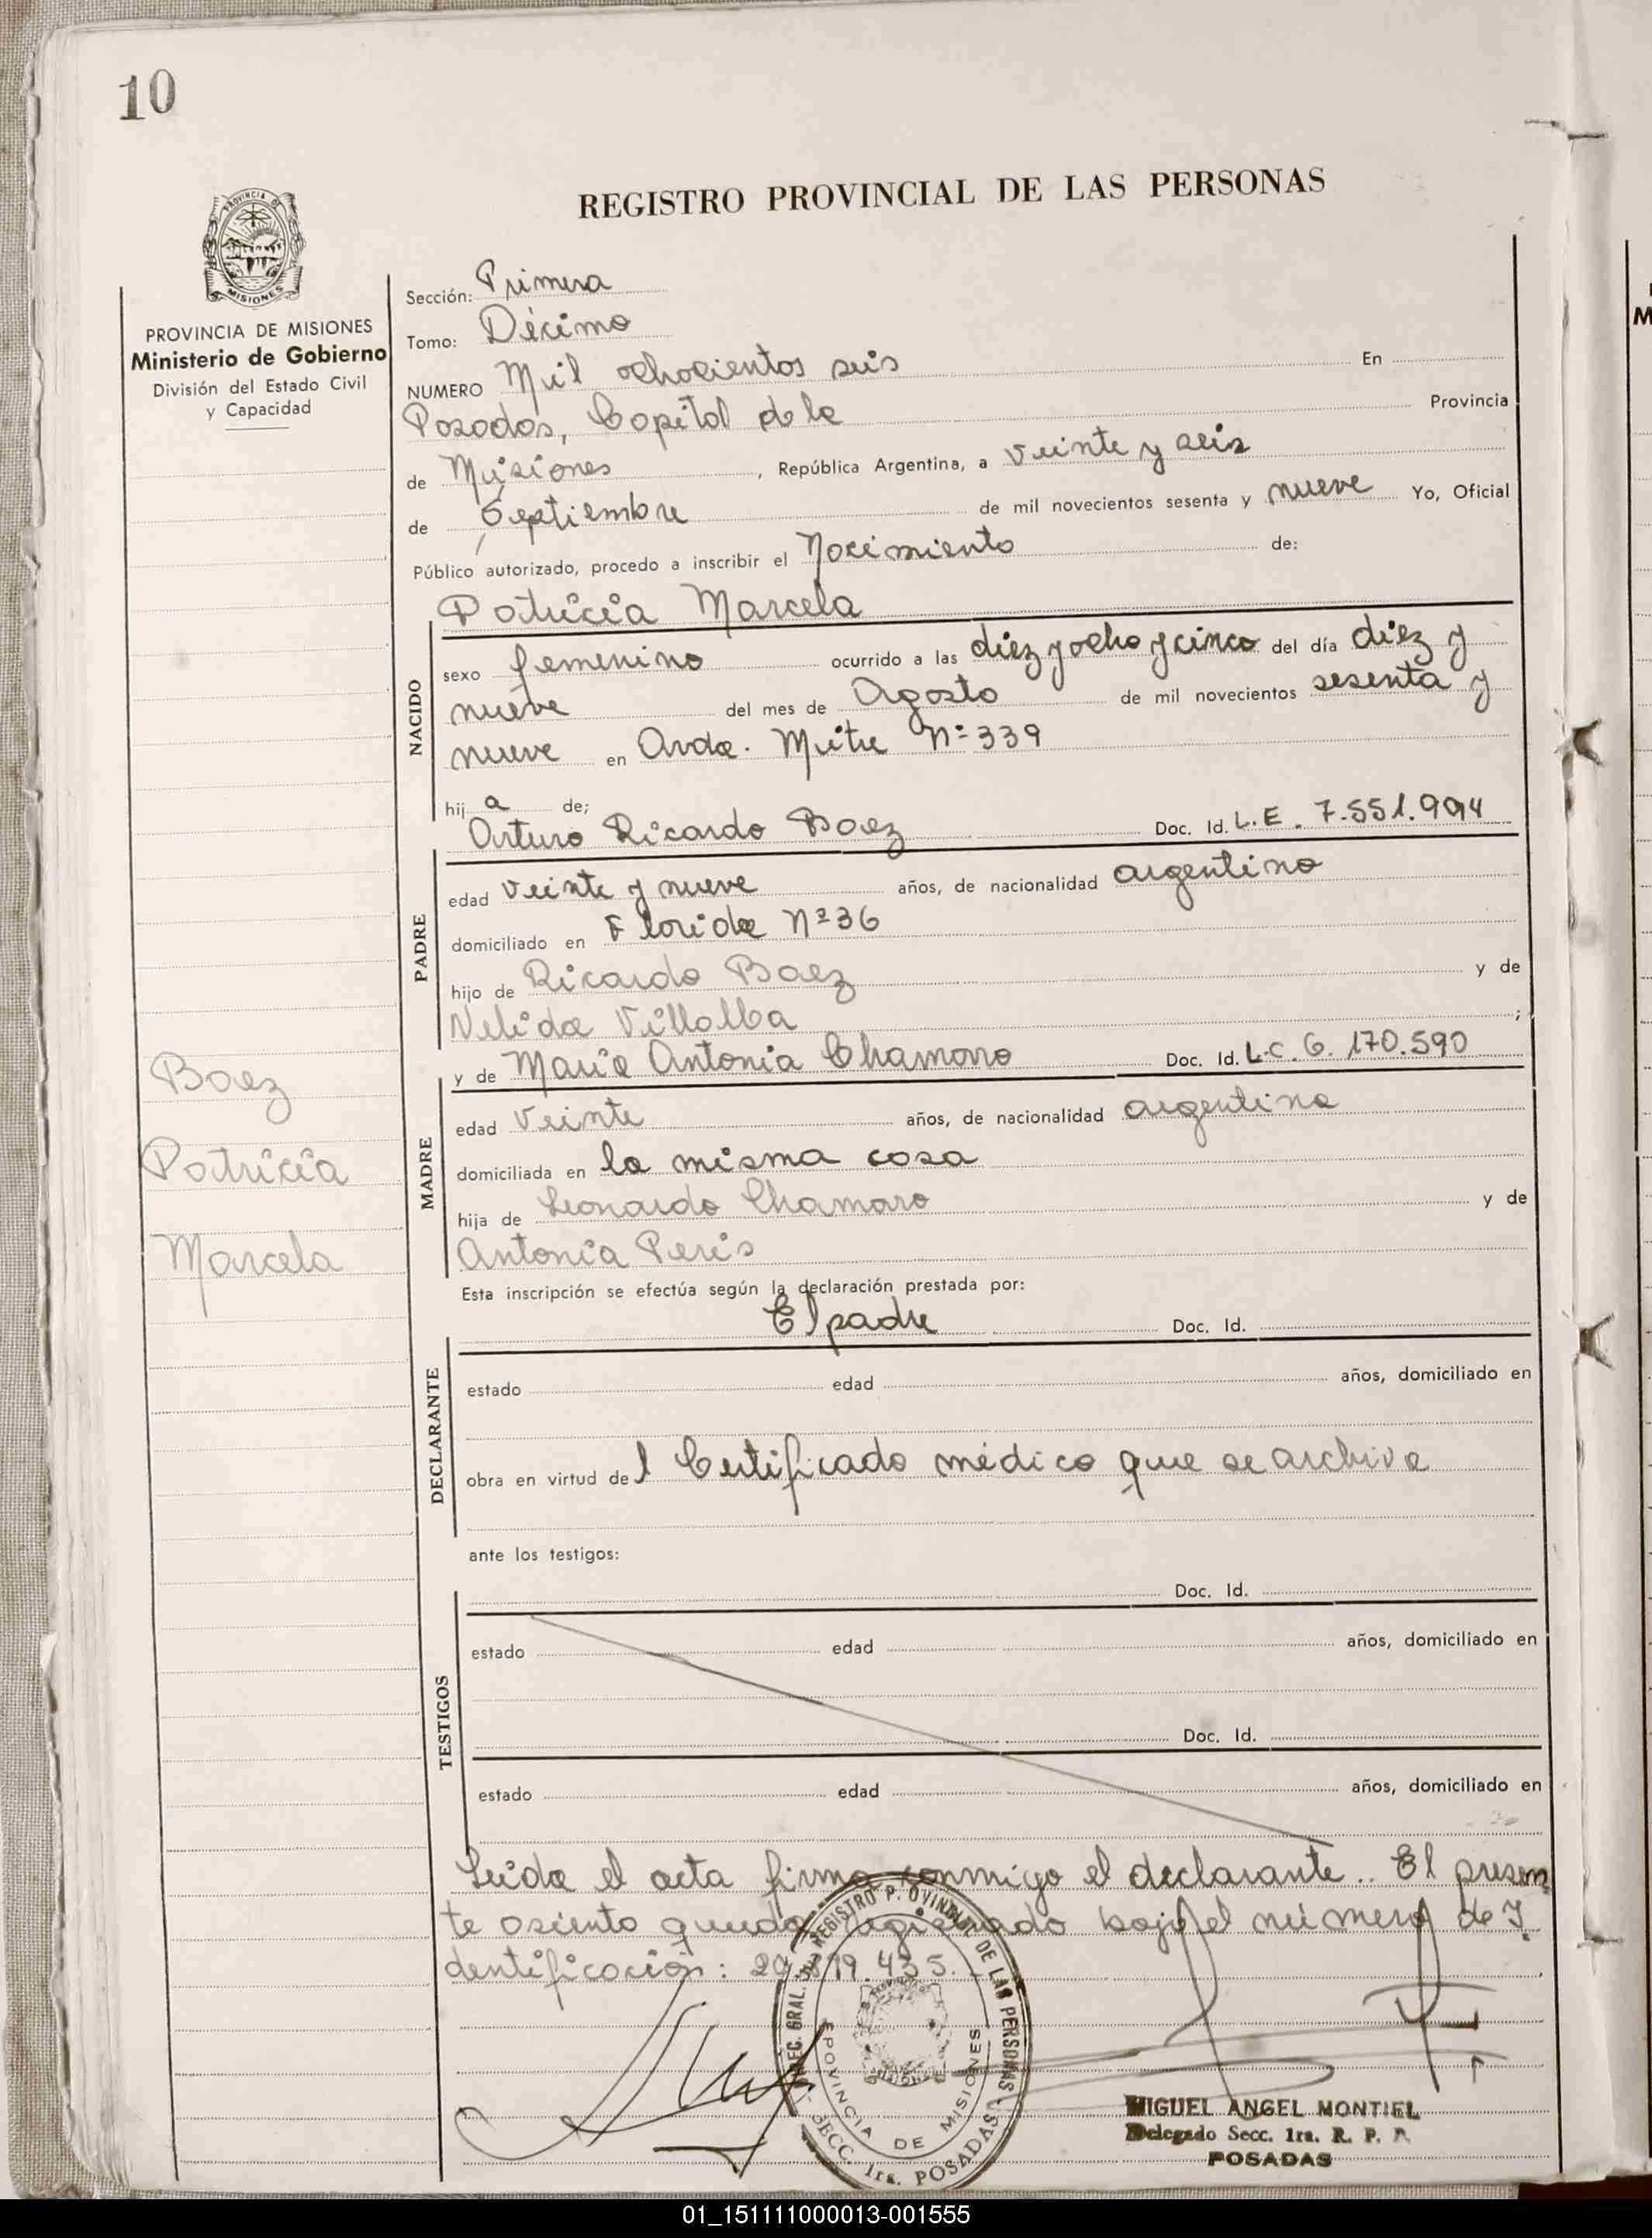 10
REGISTRO PROVINCIAL DE LAS PERSONAS
PROVINCIA DE MISIONES
Ministerio de Gobierno
División del Estado Civil
y Capacidad
Sección: Primera
Tomo: Décimo
NUMERO Mil ochocientos seis En
Posadas, Capital de la Provincia
de Misiones, República Argentina, a veinte y seis
de Septiembre de mil novecientos sesenta y nueve Yo, Oficial
Público autorizado, procedo a inscribir el Nacimiento de:
Patricia Marcela
NACIDO
sexo femenino ocurrido a las diez y ocho y cinco del día diez y
nueve del mes de Agosto de mil novecientos sesenta y
nueve en Avda. Mitre Nº 339
hij a de;
Arturo Ricardo Baez Doc. Id. L.E. 7.551.994
PADRE
edad veinte y nueve años, de nacionalidad argentino
domiciliado en Florida Nº 36
hijo de Ricardo Baez y de
Nelida Villalba ;
y de Maria Antonia Chamorro Doc. Id. L.C. 6.170.590
MADRE
edad veinte años, de nacionalidad argentina
domiciliada en la misma casa
hija de Leonardo Chamorro y de
Antonia Peris
Baez
Patricia
Marcela
Esta inscripción se efectúa según la declaración prestada por:
El padre Doc. Id.
DECLARANTE
estado edad años, domiciliado en
obra en virtud del Certificado médico que se archiva
ante los testigos:
Doc. Id.
TESTIGOS
estado edad años, domiciliado en
Doc. Id.
estado edad años, domiciliado en
Leida el acta firma conmigo el declarante.. El presen
te asiento queda registrado bajo el número de I
dentificación: 435.
DIREC. GRAL. DEL REGISTRO PROVINCIAL DE LAS PERSONAS
PROVINCIA DE MISIONES
SECC. 1ra. POSADAS
MIGUEL ANGEL MONTIEL
Delegado Secc. 1ra. R. P. P.
POSADAS
01_151111000013-001555